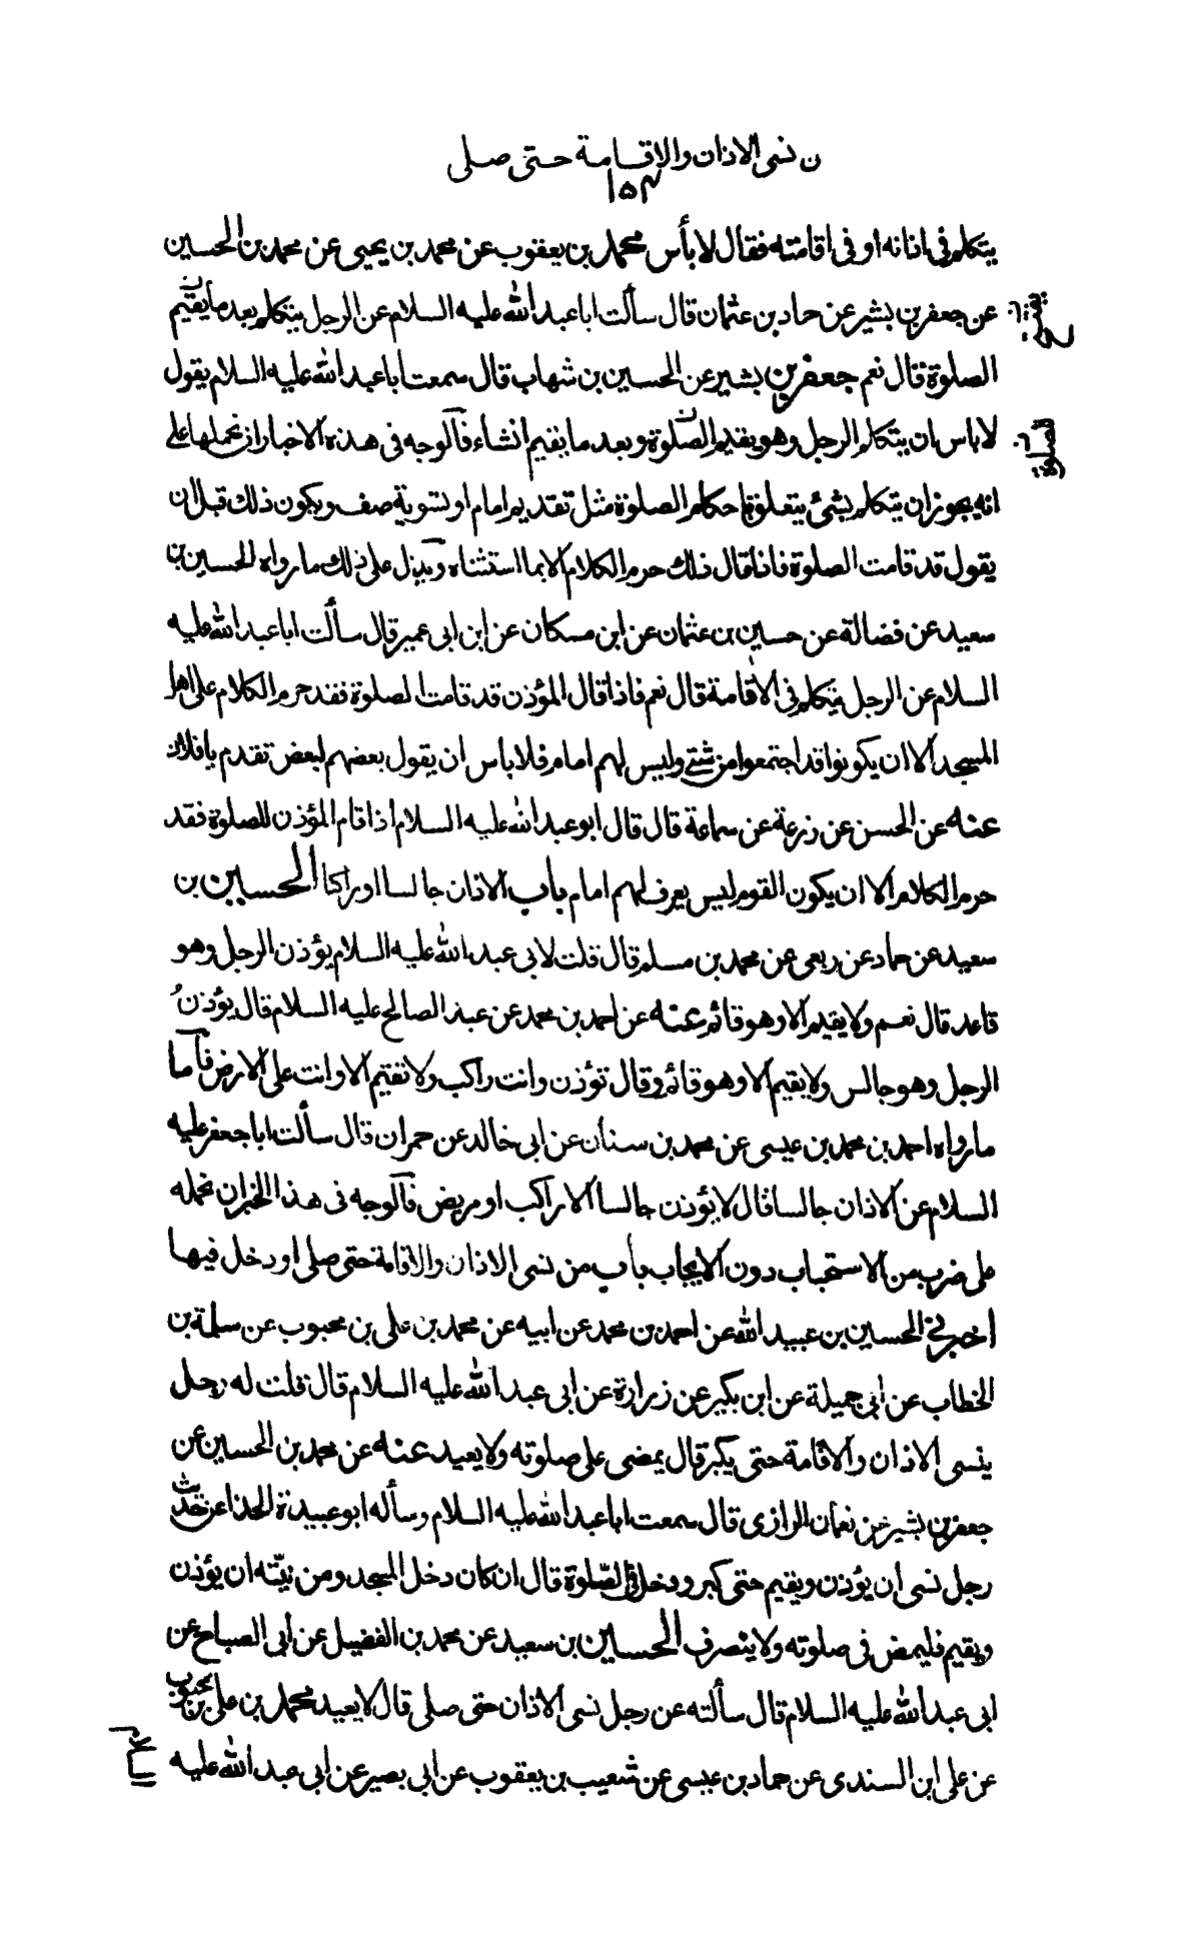 ن نسى الاذان والاقامة حتى صلى
١٥٣
يتكلم فى اذانه او فى اقامته فقال لا بأس محمد بن يعقوب عن محمد بن يحيى عن محمد بن الحسين
عن جعفر بن بشير عن حماد بن عثمان قال سألت ابا عبد الله عليه السلام عن الرجل يتكلم بعد ما يقيم
الصلوة قال نعم جعفر بن بشير عن الحسين بن شهاب قال سمعت ابا عبد الله عليه السلام يقول
لا باس ان يتكلم الرجل وهو يقيم الصلوة وبعد ما يقيم انشاء فالوجه فى هذه الاخبار ان نحملها على
انه يجوز ان يتكلم بشئ يتعلق باحكام الصلوة مثل تقديم امام او تسوية صف ويكون ذلك قبل ان
يقول قد قامت الصلوة فاذا قال ذلك حرم الكلام الا بما استثناه ويدل على ذلك ما رواه الحسين بن
سعيد عن فضالة عن حسين بن عثمان عن ابن مسكان عن ابن ابى عمير قال سألت ابا عبد الله عليه
السلام عن الرجل يتكلم فى الاقامة قال نعم فاذا قال المؤذن قد قامت الصلوة فقد حرم الكلام على اهل
المسجد الا ان يكونوا قد اجتمعوا من شتى وليس لهم امام فلا باس ان يقول بعضهم لبعض تقدم يا فلان
عنه عن الحسن عن زرعة عن سماعة قال قال ابو عبد الله عليه السلام اذا قام المؤذن للصلوة فقد
حرم الكلام الا ان يكون القوم ليس يعرف لهم امام باب الاذان جالسا او راكبا الحسين بن
سعيد عن حماد عن ربعى عن محمد بن مسلم قال قلت لابى عبد الله عليه السلام يؤذن الرجل وهو
قاعد قال نعم ولا يقيم الا وهو قائم عنه عن احمد بن محمد عن عبد الصالح عليه السلام قال يؤذن
الرجل وهو جالس ولا يقيم الا وهو قائم وقال تؤذن وانت راكب ولا تقيم الا وانت على الارض فاما
ما رواه احمد بن محمد بن عيسى عن محمد بن سنان عن ابى خالد عن حمران قال سألت ابا جعفر عليه
السلام عن الاذان جالسا قال لا يؤذن جالسا الا راكب او مريض فالوجه فى هذا الخبر ان نحمله
على ضرب من الاستحباب دون الايجاب باب من نسى الاذان والاقامة حتى صلى او دخل فيها
اخبرنى الحسين بن عبيد الله عن احمد بن محمد عن ابيه عن محمد بن على بن محبوب عن سلمة بن
الخطاب عن ابى جميلة عن ابن بكير عن زرارة عن ابى عبد الله عليه السلام قال قلت له رجل
ينسى الاذان والاقامة حتى يكبر قال يمضى على صلوته ولا يعيد عنه عن محمد بن الحسين عن
جعفر بن بشير عن نعمان الرازى قال سمعت ابا عبد الله عليه السلام وسأله ابو عبيدة الحذاء عن حديث
رجل نسى ان يؤذن ويقيم حتى كبر ودخل فى الصلوة قال ان كان دخل المسجد ومن نيته ان يؤذن
ويقيم فليمض فى صلوته ولا ينصرف الحسين بن سعيد عن محمد بن الفضيل عن ابى الصباح عن
ابى عبد الله عليه السلام قال سألته عن رجل نسى الاذان حتى صلى قال لا يعيد محمد بن على بن محبوب
عن على ابن السندى عن حماد بن عيسى عن شعيب بن يعقوب عن ابى بصير عن ابى عبد الله عليه
السلام
يقيم
الصلوة